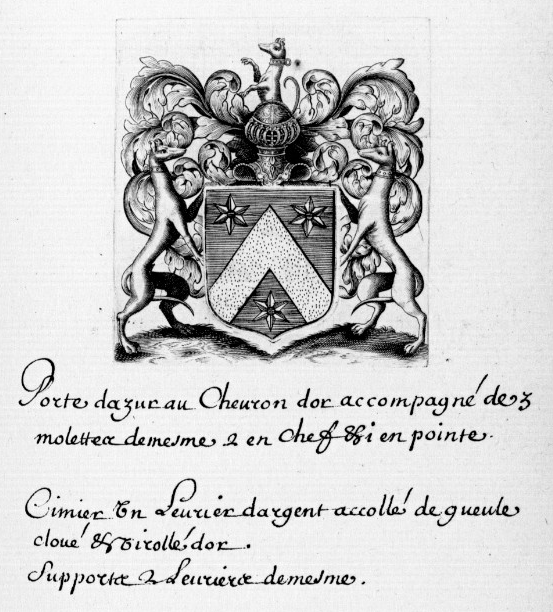 Porte dazur au Cheuron dor accompagné de 3
molettes demesme 2 en Chef & i en pointe.
Cimier Vn Leurier dargent accollé de gueule
cloué & virollé dor.
Supports 2 Leuriers demesme.